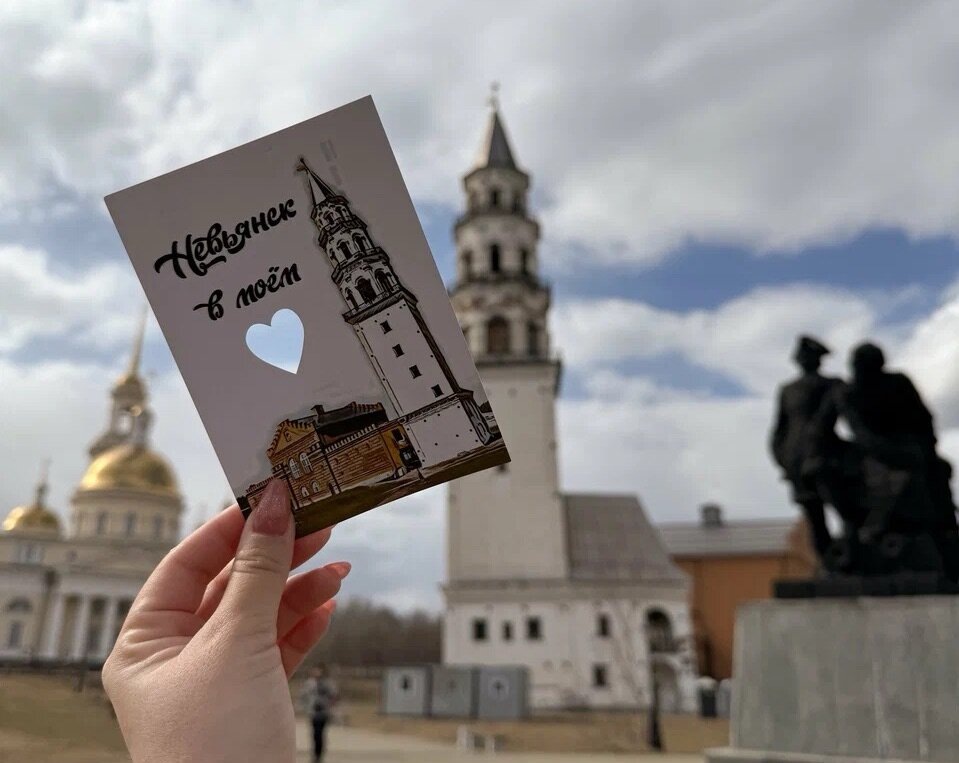 Невьянск
в моём